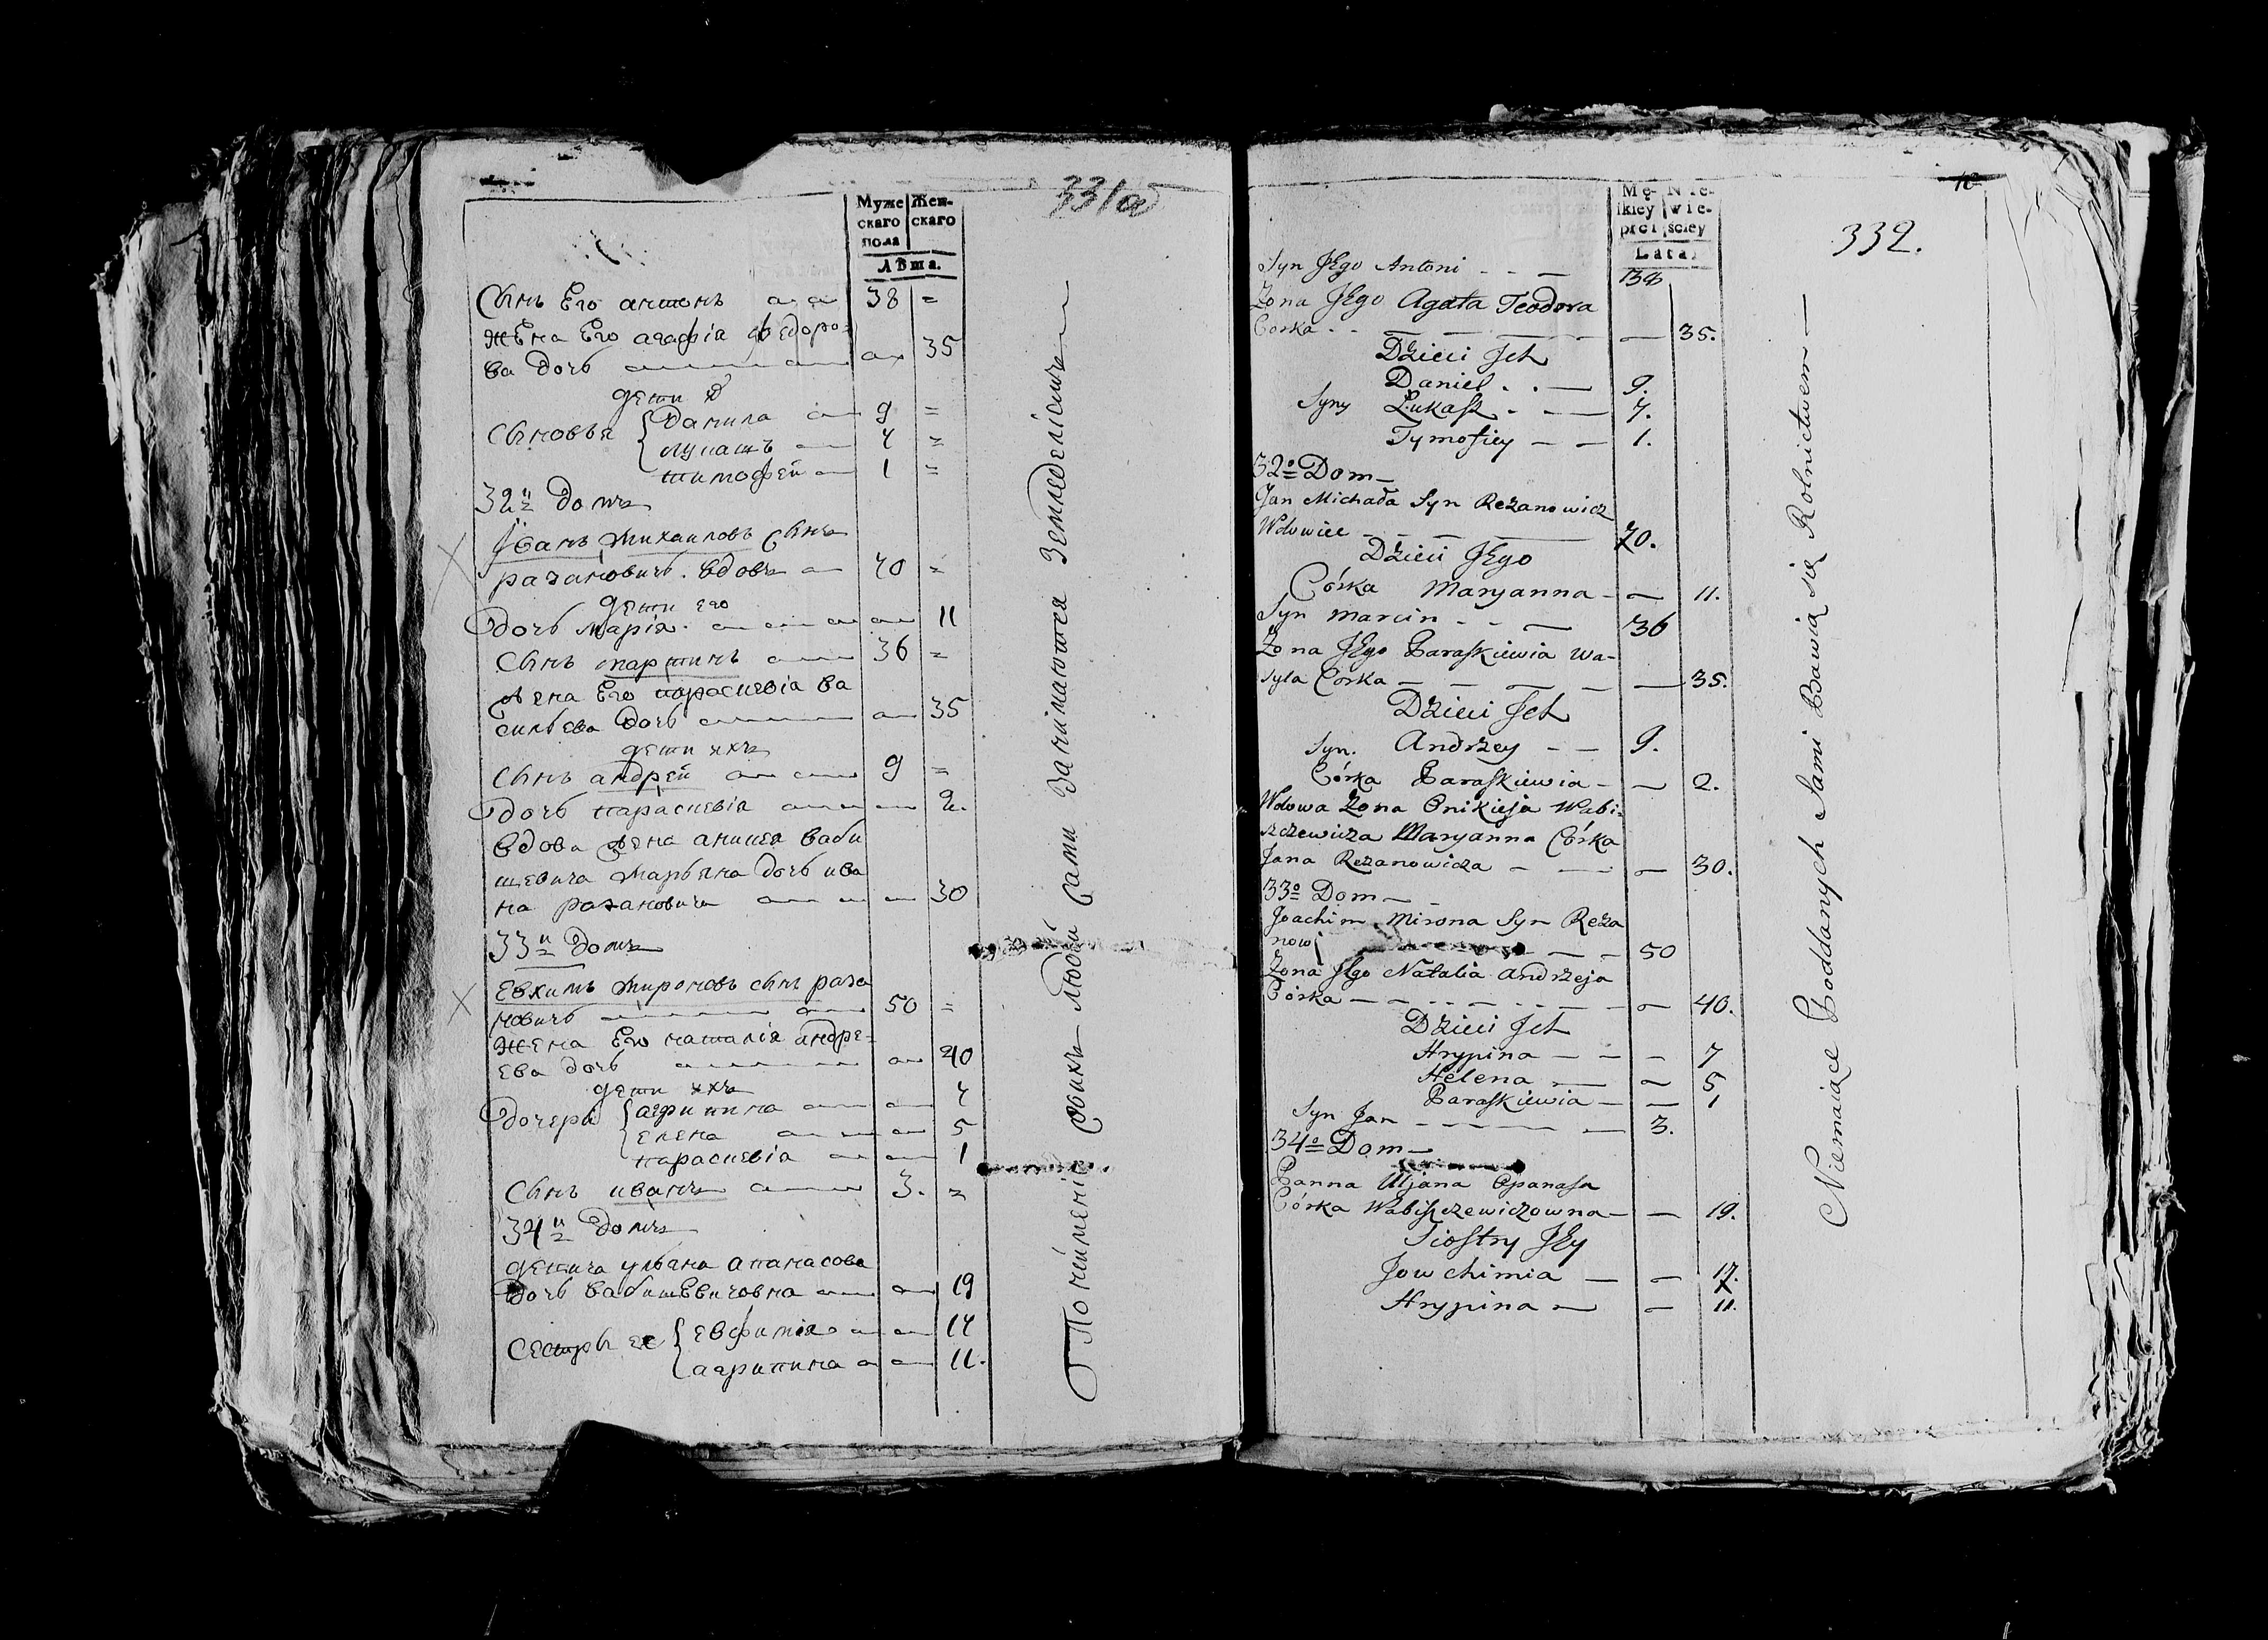 331об
Муже Жен-
скаго скаго
пола
Лѣта.
Сынъ Его антонъ 38 =
жена Его агафія федоро=
ва дочь 35
дети
Сыновья Данила 9 =
лукашъ 7 =
тимофей 1 =
32й Домъ
Иванъ Михаиловъ Сынъ
разановичь. вдовъ 70 =
дети его
дочь Марія 11
Сынъ мартинъ 36 =
жена Его параскевіа ва
сильева дочь 35
дети ихъ
Сынъ андрей 9 =
дочь параскевіа 2.
вдова жена аникея ваби
щевича Марьяна дочь ива
на разановича 30
33й домъ
Евхимъ Мироновъ сынъ раза
новичь 50 =
жена Его наталія андре-
ева дочь 40
дети ихъ
дочери агрипина 7
елена 5
параскевіа 1
Сынъ иванъ 3. =
34й домъ
девица ульяна апанасова
дочь вабишевичовна 19
Сестры ее евфимія 17
агрипина 11.
Понеименію Своихъ людей Сами Занимаются Земледеліемъ
Mę- Nie-
skiey wie-
płci sciey
Lata.
332.
Syn JEgo Antoni 38
Zona JEgo Agata Teodora
Corka 35.
Dzieci Jch
Daniel 9.
Syny Łukasz 7.
Tymofiey 1.
32o Dom
Jan Michała Syn Rezanowicz
Wdowiec 70.
Dzieci JEgo
Córka Maryanna 11.
Syn Marcin 36
Zona JEgo Paraskiewia Wa-
syla Corka 35.
Dzieci Jch
Syn. Andrzey 9.
Córka Paraskiewia 2.
Wdowa Zona Onikieja Wabi-
szczewicza Maryanna Córka
Jana Rezanowicza 30.
33o Dom
Joachim Mirona Syn Reza
now 50
Zona JEgo Natalia Andrzeja
Córka 40.
Dzieci Jch
Hrypina 7
Helena 5
Paraskiewia 1
Syn Jan 3.
34o Dom
Panna Uljana Opanasa
Córka Wabiszczewiczowna 19.
Siostry JEy
Jowchimia 17.
Hrypina 11.
Niemaiąc Poddanych Sami Bawią się Rolnictwem